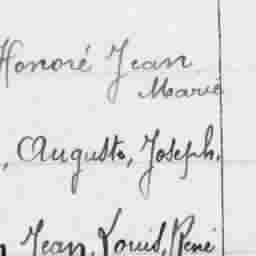 Honoré Jean
Marie
, Auguste, Joseph.
Jean, Louis, René